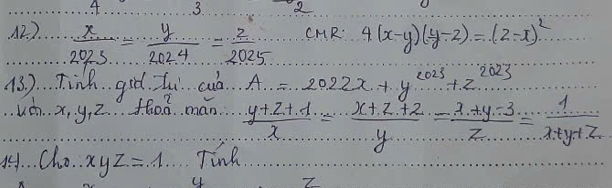 4 3 2
12.) x/2023 = y/2024 = z/2025 CMR: 4(x-y)(y-z) = (z-x)²
13.) Tính giá trị của A = 2022x + y^2023 + z^2023
với x, y, z thoả mãn (y+z+1)/x = (x+z+2)/y = (x+y-3)/z = 1/(x+y+z)
14.) Cho xyz = 1 Tính
y z